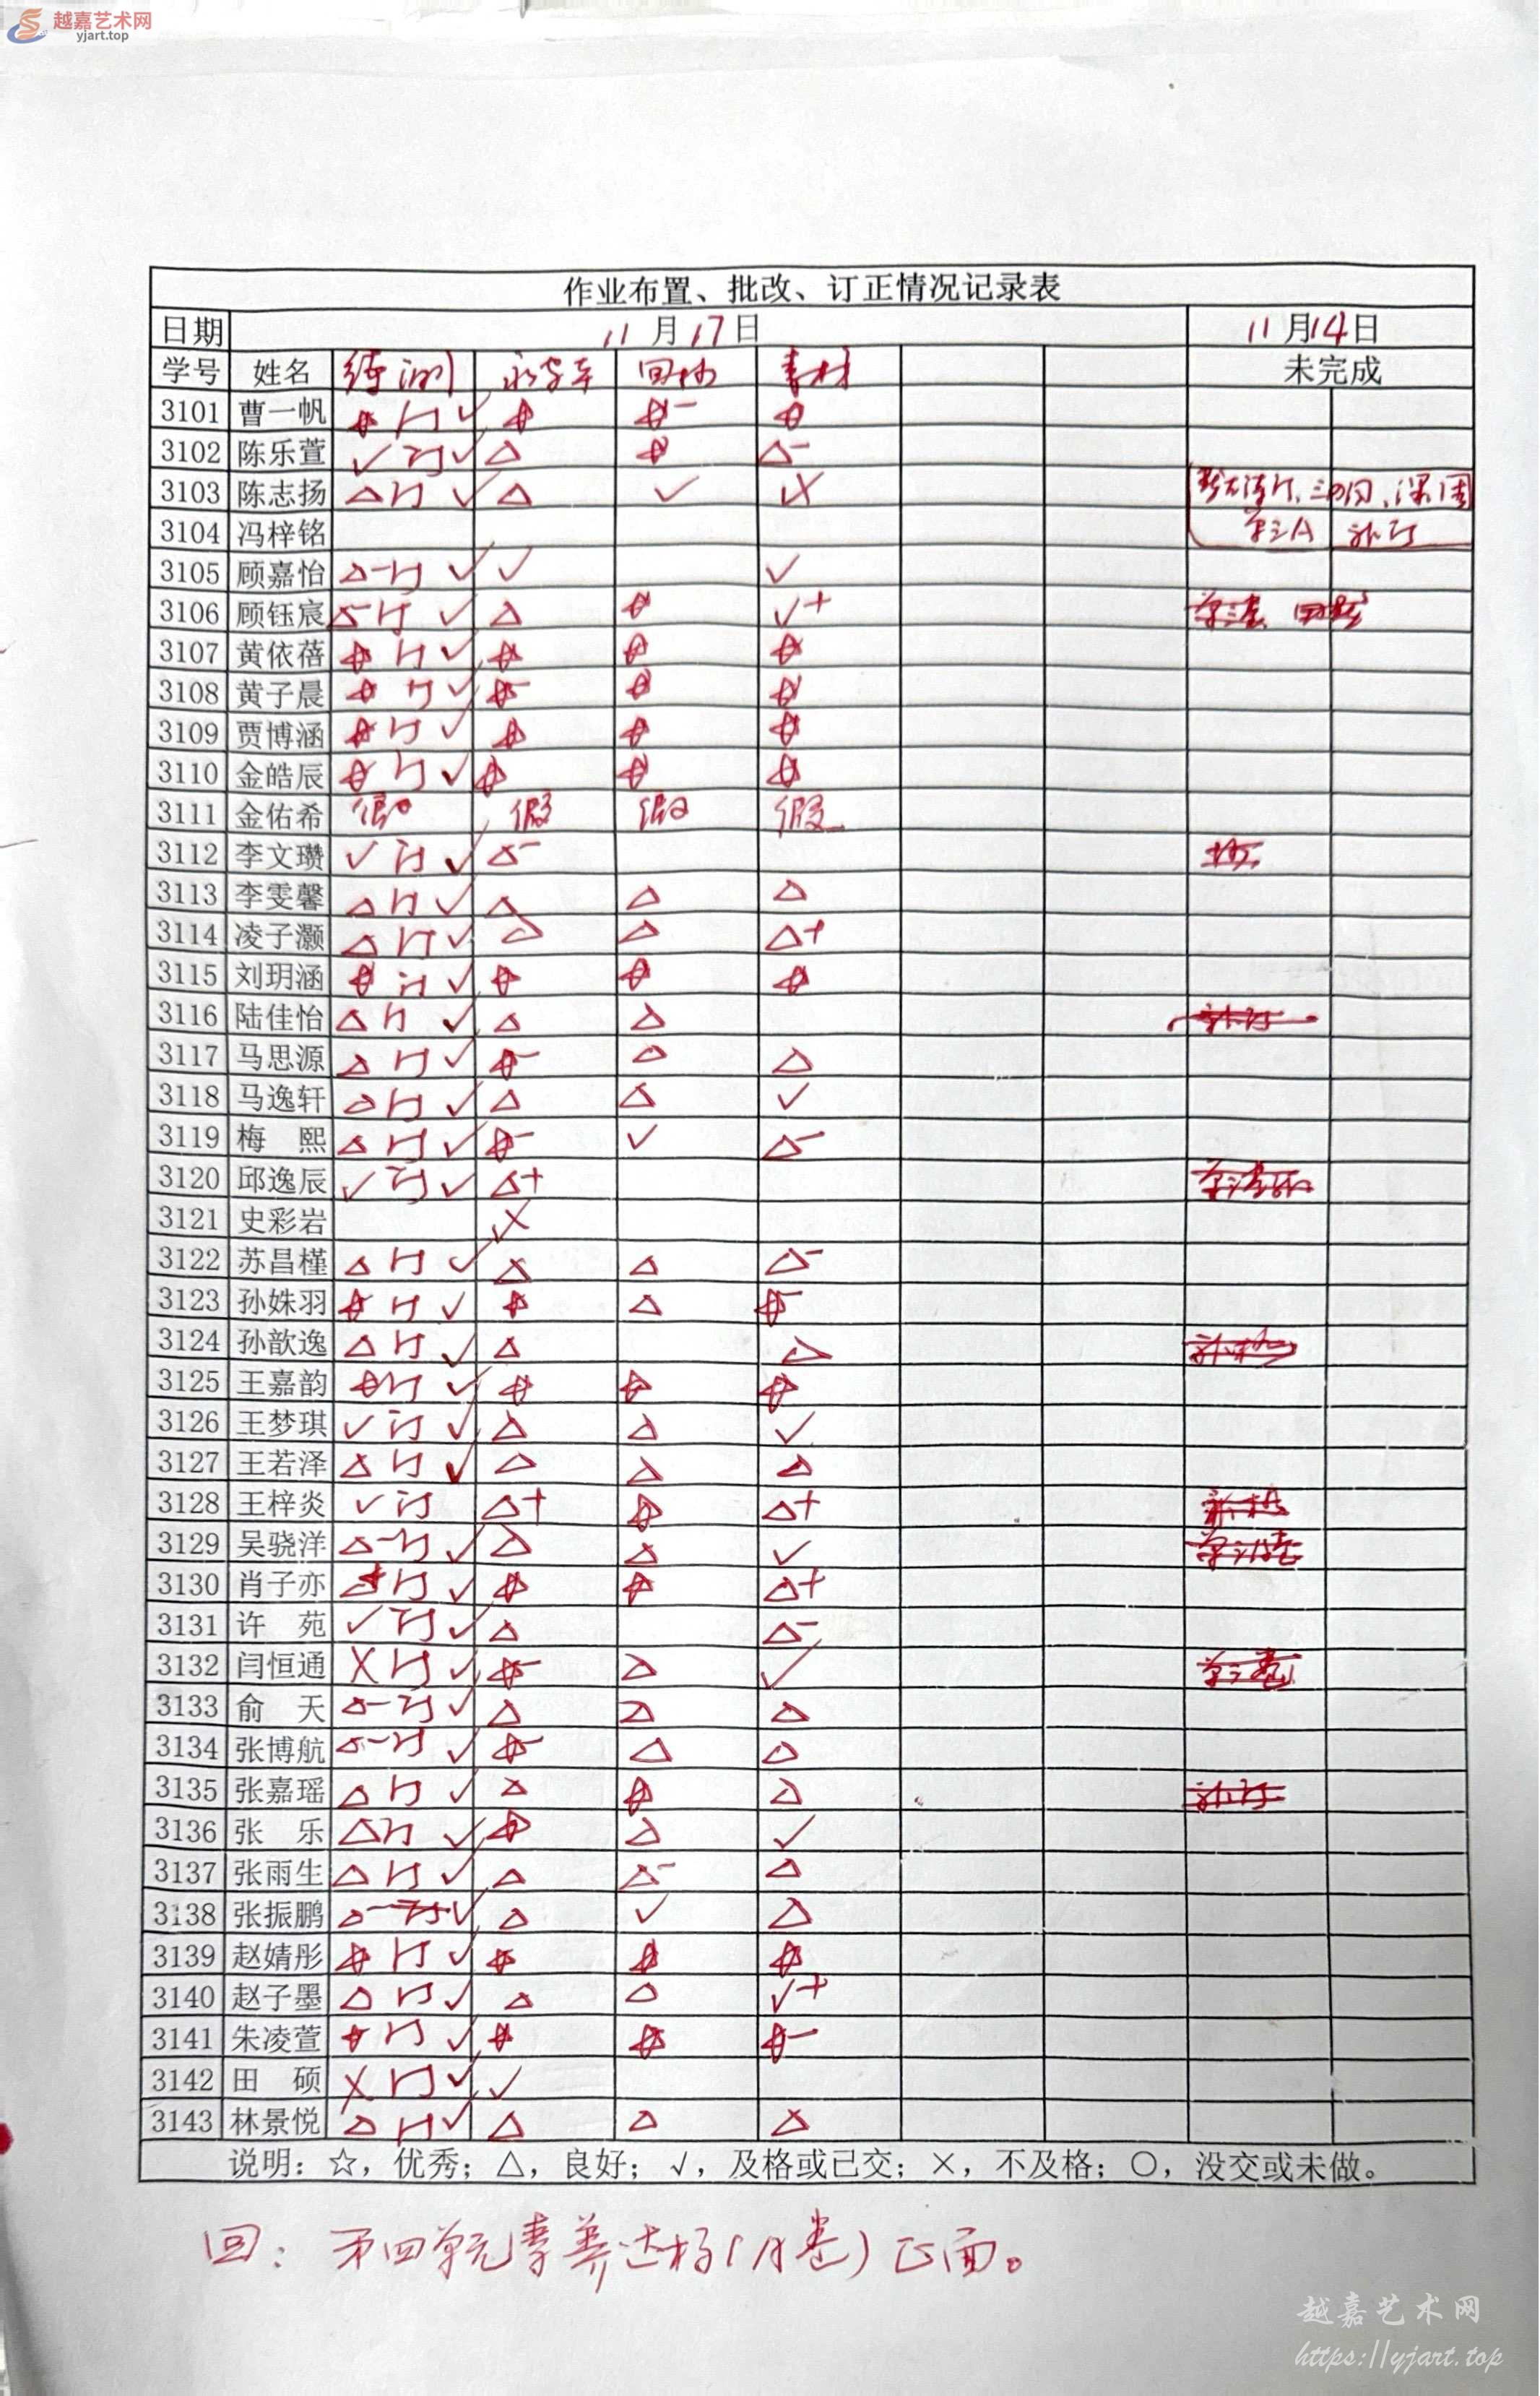 越嘉艺术网
yjart.top
作业布置、批改、订正情况记录表
日期 11月17日 11月14日
学号 姓名 练测 回校 素材 未完成
3101 曹一帆 ☆ 订 √ ☆ ☆- ☆
3102 陈乐萱 √ 订 √ △ ☆ △-
3103 陈志扬 △ 订 √ △ √
3104 冯梓铭 补订
3105 顾嘉怡 △- 订 √ √ √
3106 顾钰宸 △- 订 √ △ ☆ √+
3107 黄依蓓 ☆ 订 √ ☆ ☆ ☆
3108 黄子晨 ☆ 订 √ ☆- ☆ ☆
3109 贾博涵 ☆ 订 √ ☆ ☆ ☆
3110 金皓辰 ☆ 订 √ ☆ ☆ ☆
3111 金佑希 假 假 假 假
3112 李文瓒 √ 订 √ △-
3113 李雯馨 △ 订 √ △ △ △
3114 凌子灏 △ 订 √ △ △ △+
3115 刘玥涵 ☆ 订 √ ☆ ☆ ☆
3116 陆佳怡 △ 订 √ △ △ 补订
3117 马思源 △ 订 √ ☆- △ △
3118 马逸轩 △ 订 √ △ △ √
3119 梅 熙 △ 订 √ ☆- √ △-
3120 邱逸辰 √ 订 √ △+
3121 史彩岩
3122 苏昌槿 △ 订 √ △ △ △-
3123 孙姝羽 ☆ 订 √ ☆ △ ☆-
3124 孙歆逸 △ 订 √ △ △
3125 王嘉韵 ☆ 订 √ ☆ ☆ ☆
3126 王梦琪 √ 订 √ △ △ √
3127 王若泽 △ 订 √ △ △ △
3128 王梓炎 √ 订 △+ ☆ △+
3129 吴骁洋 △- 订 √ △ △ √
3130 肖子亦 订 √ ☆ ☆ △+
3131 许 苑 √ 订 √ △ △-
3132 闫恒通 × 订 √ ☆- △ √
3133 俞 天 △- 订 √ △ △ △
3134 张博航 △- 订 √ ☆- △ △
3135 张嘉瑶 △ 订 √ △ ☆ △ 补订
3136 张 乐 △ 订 √ ☆ △ √
3137 张雨生 △ 订 √ △ △- △
3138 张振鹏 △- 订 √ △ √ △
3139 赵婧彤 ☆ 订 √ ☆ ☆ ☆
3140 赵子墨 △ 订 √ △ △ √+
3141 朱凌萱 ☆ 订 √ ☆ ☆ ☆-
3142 田 硕 × 订 √ √
3143 林景悦 △ 订 √ △ △ △
说明：☆，优秀；△，良好；√，及格或已交；×，不及格；○，没交或未做。
回：第四单元素养达标(A卷)正面。
越嘉艺术网
https://yjart.top